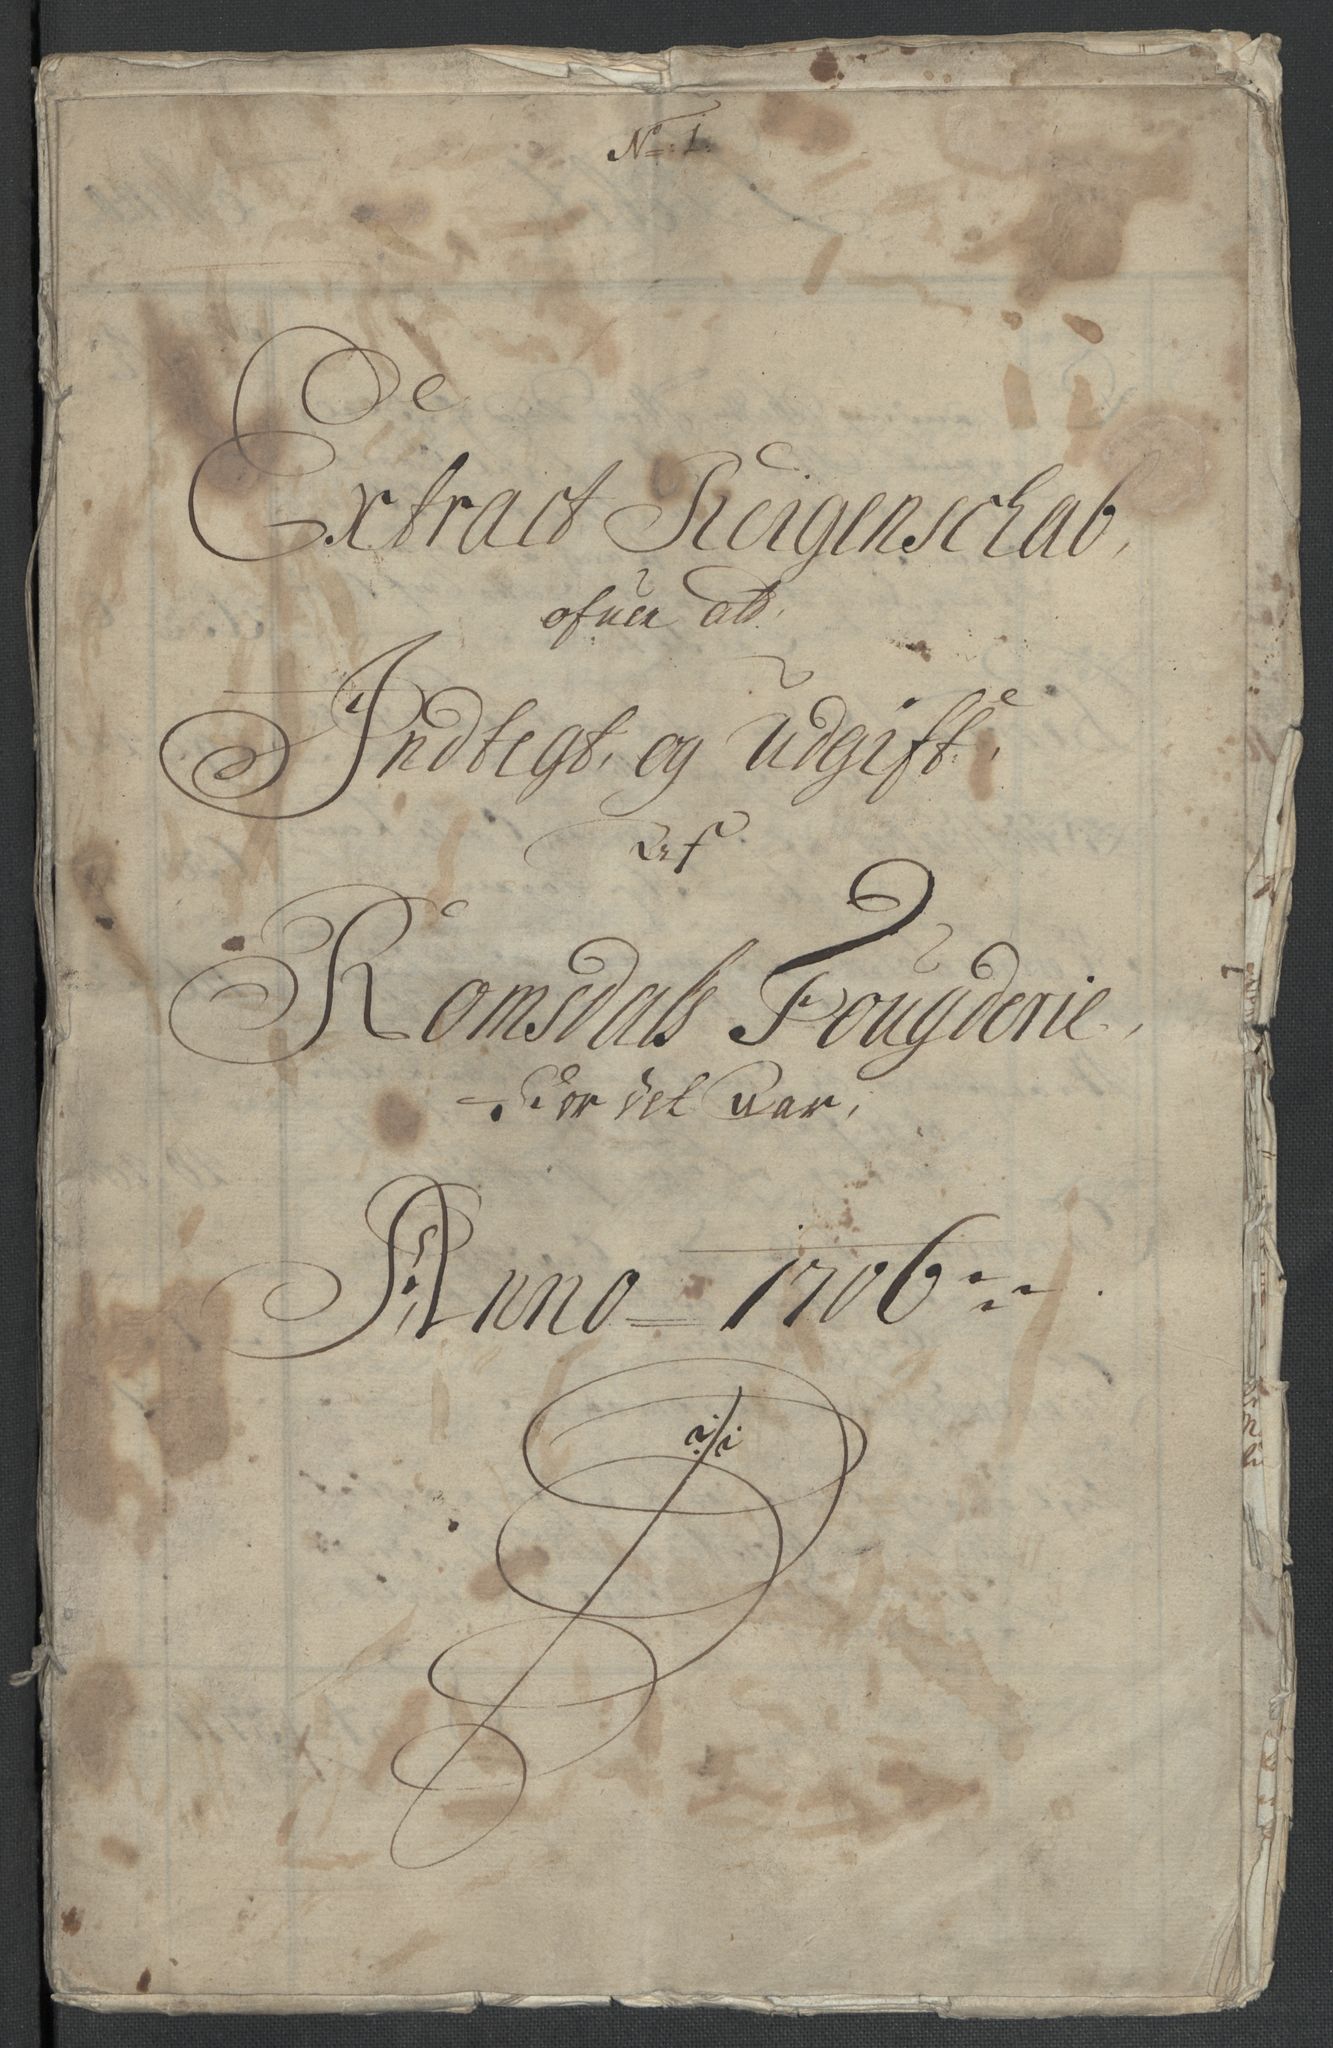 No: 1.
Extract Reigenschab,
ofuer ald,
Indtegt, og Udgift,
Af
Romsdals Fougderie,
For det Aar,
Anno 1706